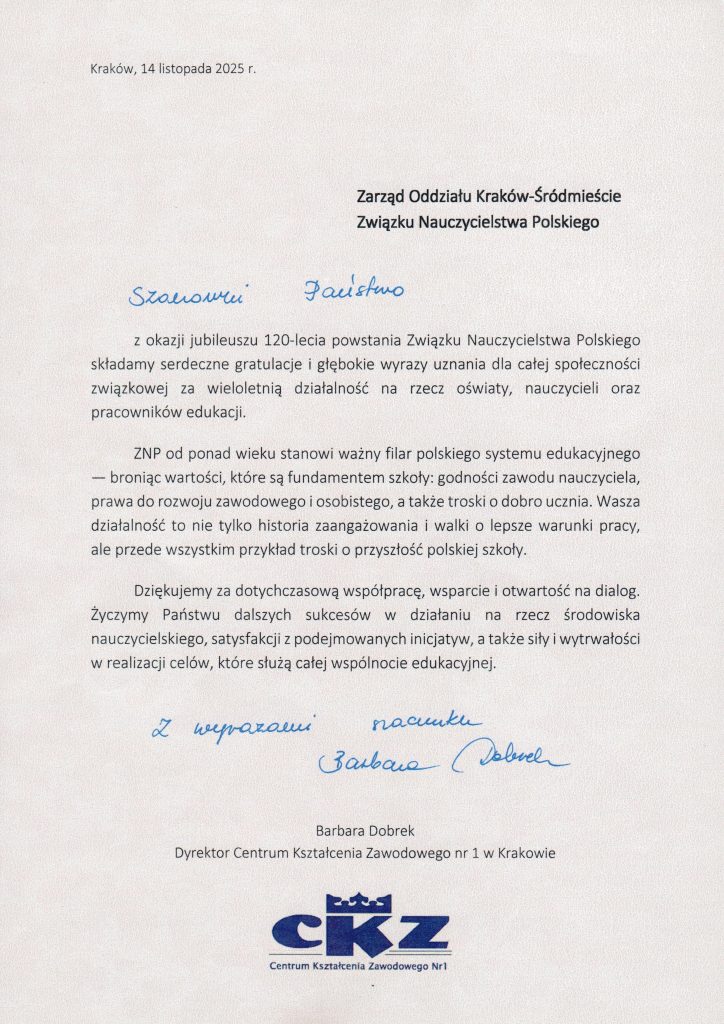 Kraków, 14 listopada 2025 r.
Zarząd Oddziału Kraków-Śródmieście
Związku Nauczycielstwa Polskiego
Szanowni Państwo
z okazji jubileuszu 120-lecia powstania Związku Nauczycielstwa Polskiego
składamy serdeczne gratulacje i głębokie wyrazy uznania dla całej społeczności
związkowej za wieloletnią działalność na rzecz oświaty, nauczycieli oraz
pracowników edukacji.
ZNP od ponad wieku stanowi ważny filar polskiego systemu edukacyjnego
— broniąc wartości, które są fundamentem szkoły: godności zawodu nauczyciela,
prawa do rozwoju zawodowego i osobistego, a także troski o dobro ucznia. Wasza
działalność to nie tylko historia zaangażowania i walki o lepsze warunki pracy,
ale przede wszystkim przykład troski o przyszłość polskiej szkoły.
Dziękujemy za dotychczasową współpracę, wsparcie i otwartość na dialog.
Życzymy Państwu dalszych sukcesów w działaniu na rzecz środowiska
nauczycielskiego, satysfakcji z podejmowanych inicjatyw, a także siły i wytrwałości
w realizacji celów, które służą całej wspólnocie edukacyjnej.
Z wyrazami szacunku
Barbara Dobrek
Barbara Dobrek
Dyrektor Centrum Kształcenia Zawodowego nr 1 w Krakowie
CKZ
Centrum Kształcenia Zawodowego Nr1